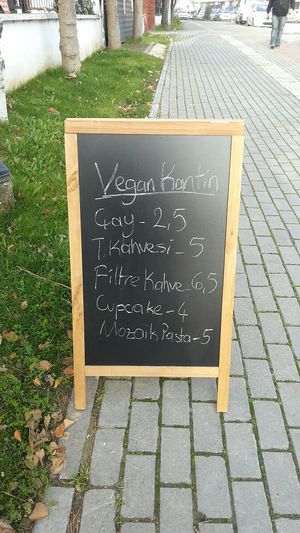 Vegan Kantin
Çay - 2,5
T. Kahvesi - 5
Filtre Kahve - 6,5
Cupcake - 4
Mozaik Pasta - 5